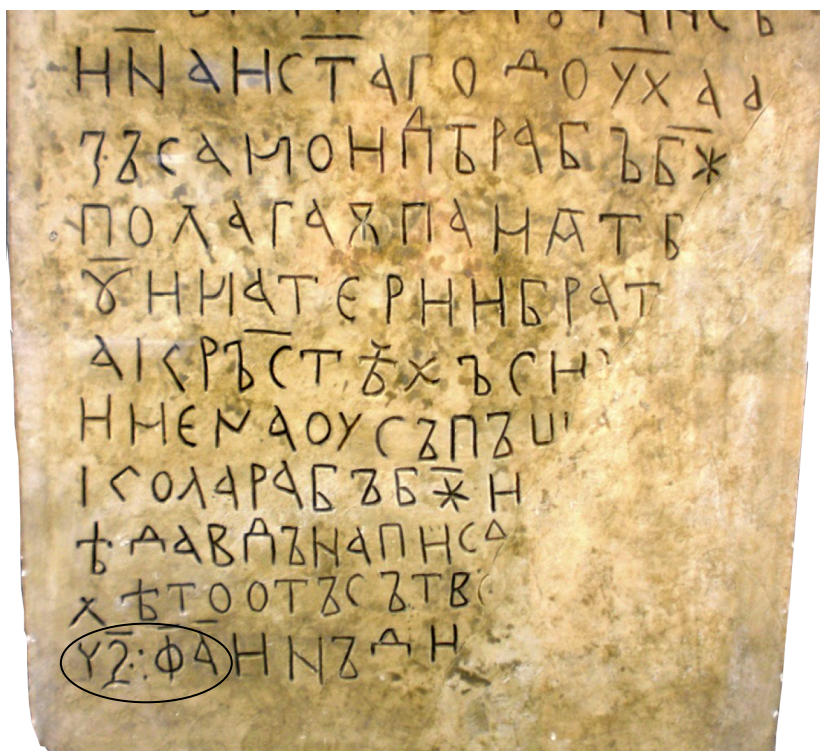 ИН҃АИСТ҃АГОДОУ҃ХАА
ЗЪСАМОИЛЪРАБЪБ҃Ж
ПОЛАГАѪПАМѦТЬ
Ꙋ҃ИМАТЕРИИБРАТ
АІКРЪС҃ТѢХЪСИ
ИМЕНАОУСЪПЪШ
ІКОЛАРАБЪБЖ҃И
ѢДАВДЪНАПИСА
ХѢТООТЪСЪТВО
ѴЗ҃:ФА҃ИНЪДИ